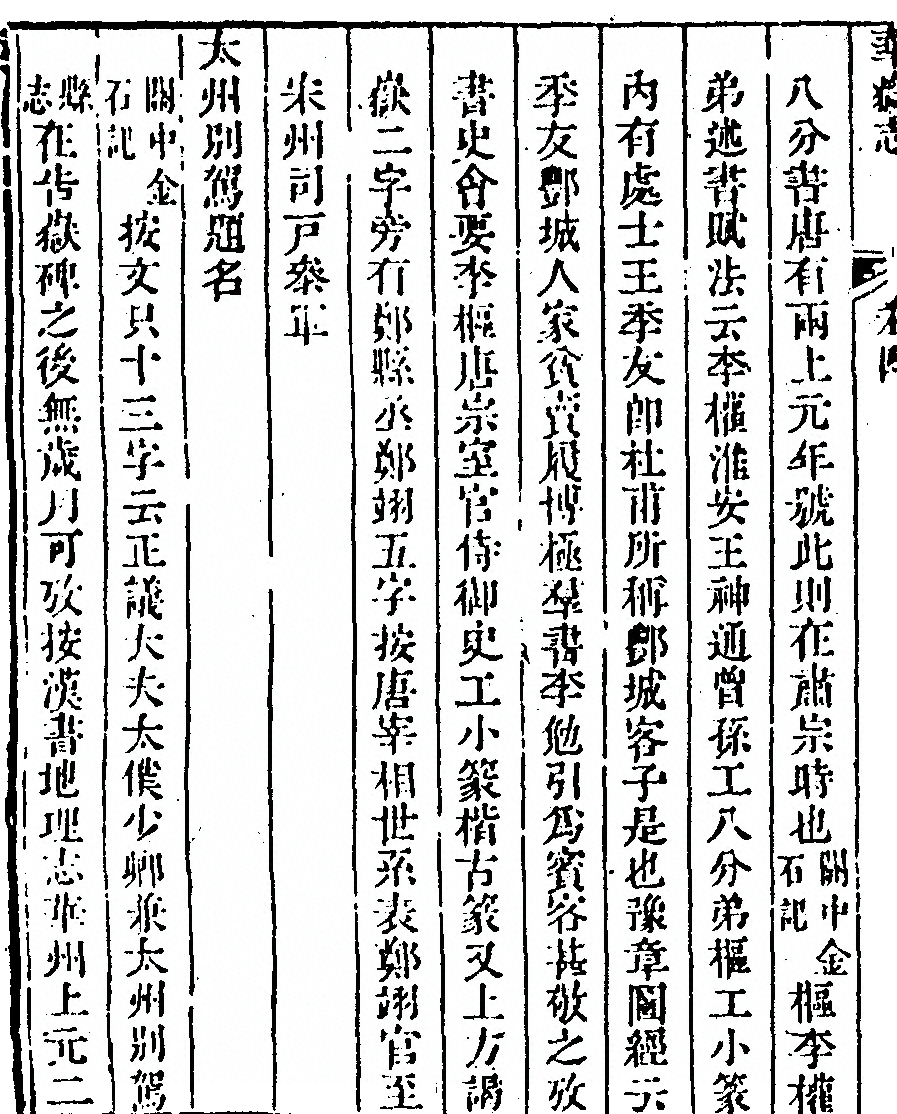 華嶽志 卷四
八分書唐有兩上元年號此則在肅宗時也關中金石記樞李權
弟述書賦法云李權淮安王神通曾孫工八分弟樞工小篆
內有處士王季友卽杜甫所稱酆城客子是也豫章圖經云
季友酆城人家貧賣履博極羣書李勉引爲賓客甚敬之攷
書史會要李樞唐宗室官侍御史工小篆楷古篆又上方謁
嶽二字旁有鄭縣丞鄭翊五字按唐宰相世系表鄭翊官至
朱州司戸叅軍
太州別駕題名
關中金石記按文只十三字云正議大夫太僕少卿兼太州別駕
縣志在告嶽碑之後無歲月可攷按漢書地理志華州上元二